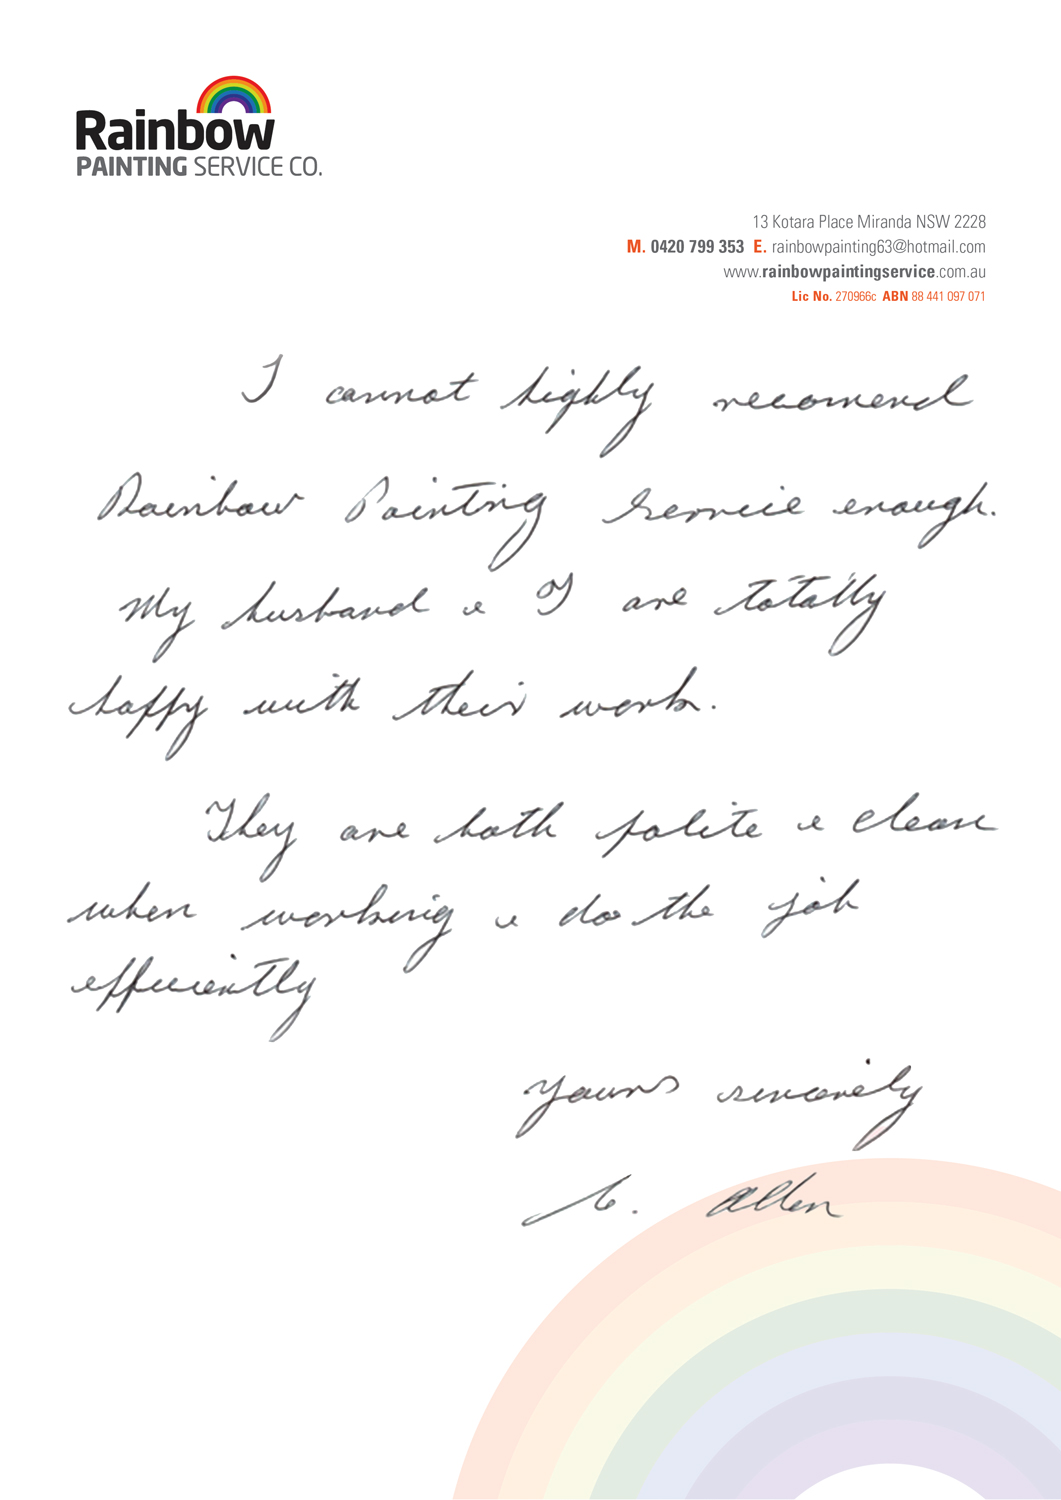 Rainbow
PAINTING SERVICE CO.
13 Kotara Place Miranda NSW 2228
M. 0420 799 353 E. rainbowpainting63@hotmail.com
www.rainbowpaintingservice.com.au
Lic No. 270966c ABN 88 441 097 071
I cannot highly recomend
Rainbow Painting Service enough.
My husband & I are totally
happy with their work.
They are both polite & clean
when working & do the job
efficiently
Yours sincerely
Allen